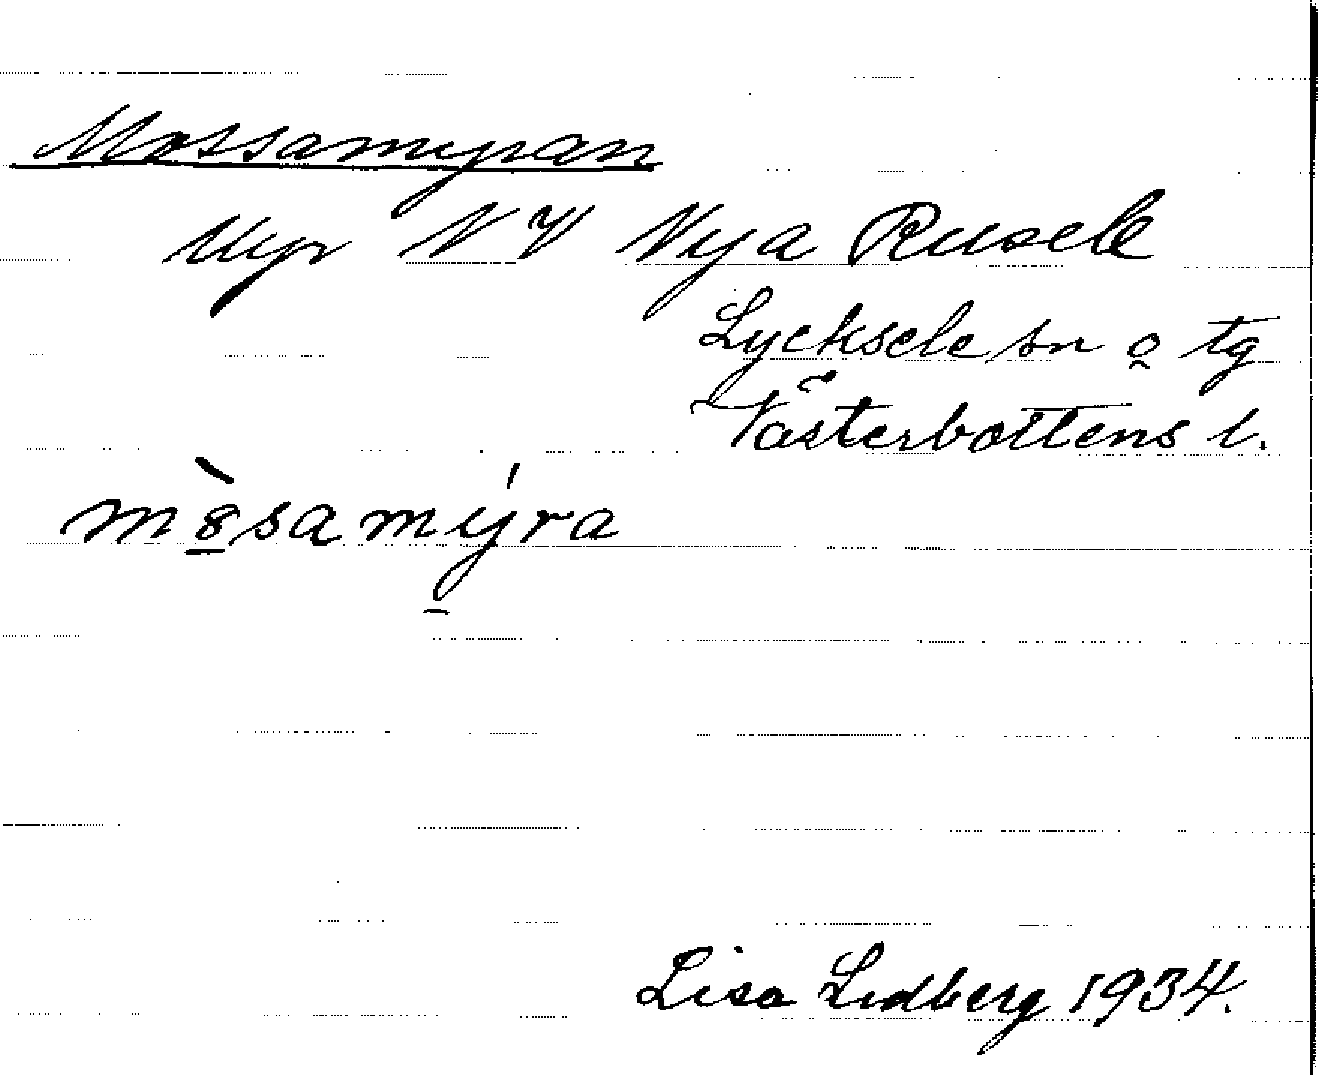 Mossamyran
Myr NV Nya Rusele
Lycksele sn o tg
Västerbottens l.
mò̱samýra
Lisa Lidberg 1934.